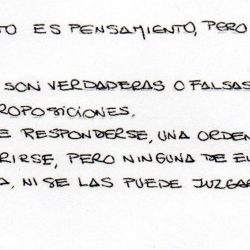 TO ES PENSAMIENTO, PERO
SON VERDADERAS O FALSAS
ROPOSICIONES.
E RESPONDERSE, UNA ORDEN
RIRSE, PERO NINGUNA DE E
A, NI SE LAS PUEDE JUZGAR